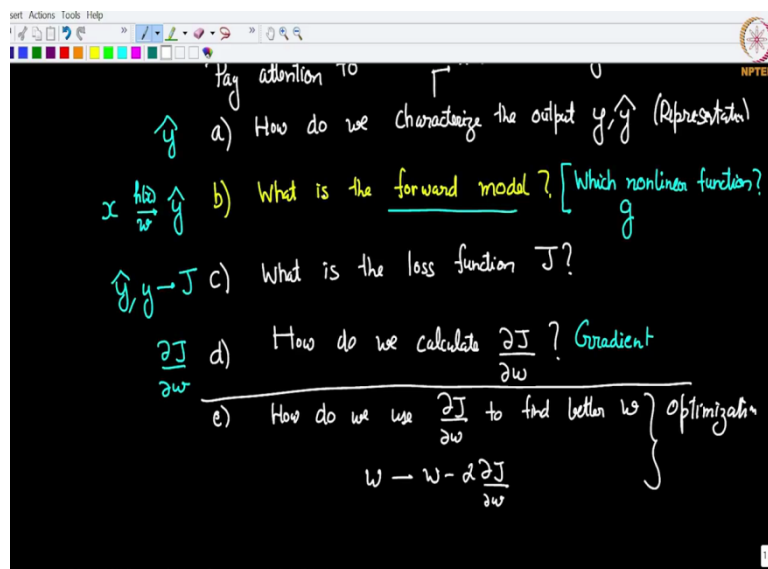 sert Actions Tools Help
NPTEL
Pay attention to
ŷ a) How do we characterize the output y, ŷ (Representation)
x h(x)/w ŷ b) What is the forward model? [Which nonlinear function? g
ŷ, y → J c) What is the loss function J?
∂J/∂w d) How do we calculate ∂J/∂w ? Gradient
e) How do we use ∂J/∂w to find better w } Optimization
w → w - α ∂J/∂w
1